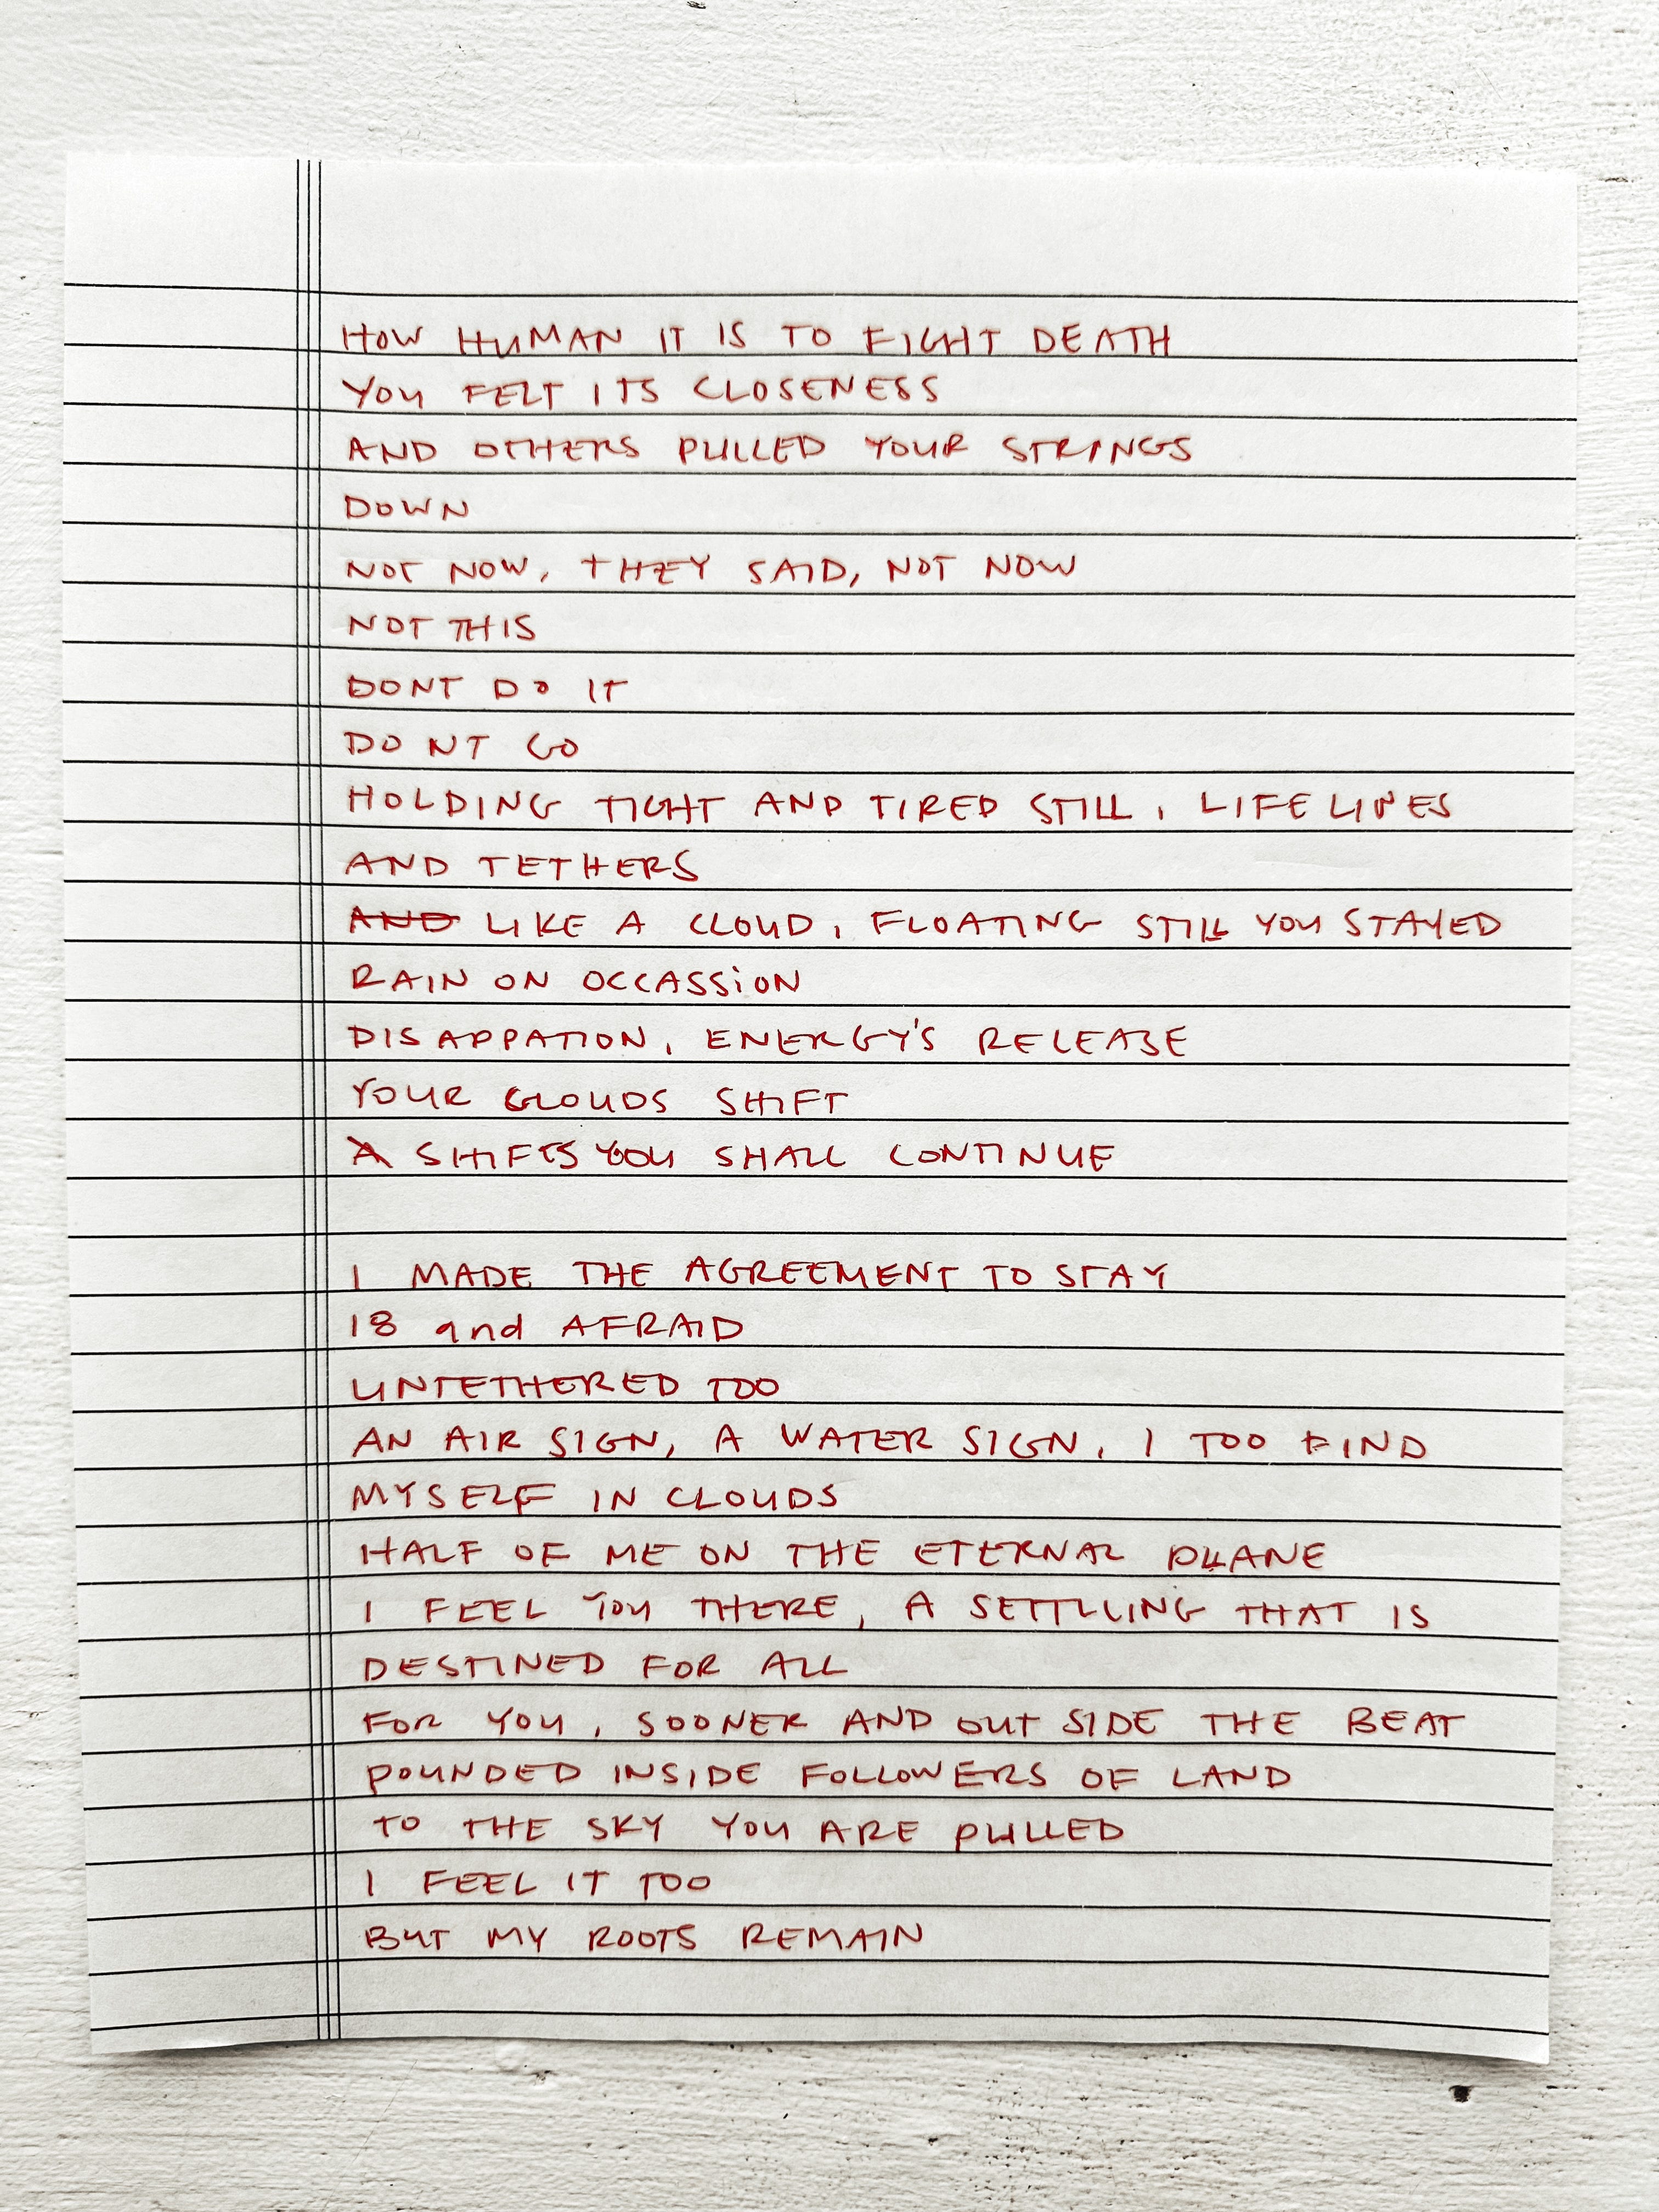 HOW HUMAN IT IS TO FIGHT DEATH
YOU FELT ITS CLOSENESS
AND OTHERS PULLED YOUR STRINGS
DOWN
NOT NOW, THEY SAID, NOT NOW
NOT THIS
DONT DO IT
DONT GO
HOLDING TIGHT AND TIRED STILL, LIFE LINES
AND TETHERS
AND LIKE A CLOUD, FLOATING STILL YOU STAYED
RAIN ON OCCASSiON
DISAPPATION, ENERGY'S RELEASE
YOUR CLOUDS SHIFT
A SHIFTS YOU SHALL CONTINUE
I MADE THE AGREEMENT TO STAY
18 and AFRAID
UNTETHERED TOO
AN AIR SIGN, A WATER SIGN, I TOO FIND
MYSELF IN CLOUDS
HALF OF ME ON THE ETERNAL PLANE
I FEEL YOU THERE, A SETTLLING THAT IS
DESTINED FOR ALL
FOR YOU, SOONER AND OUT SIDE THE BEAT
POUNDED INSIDE FOLLOWERS OF LAND
TO THE SKY YOU ARE PULLED
I FEEL IT TOO
BUT MY ROOTS REMAIN